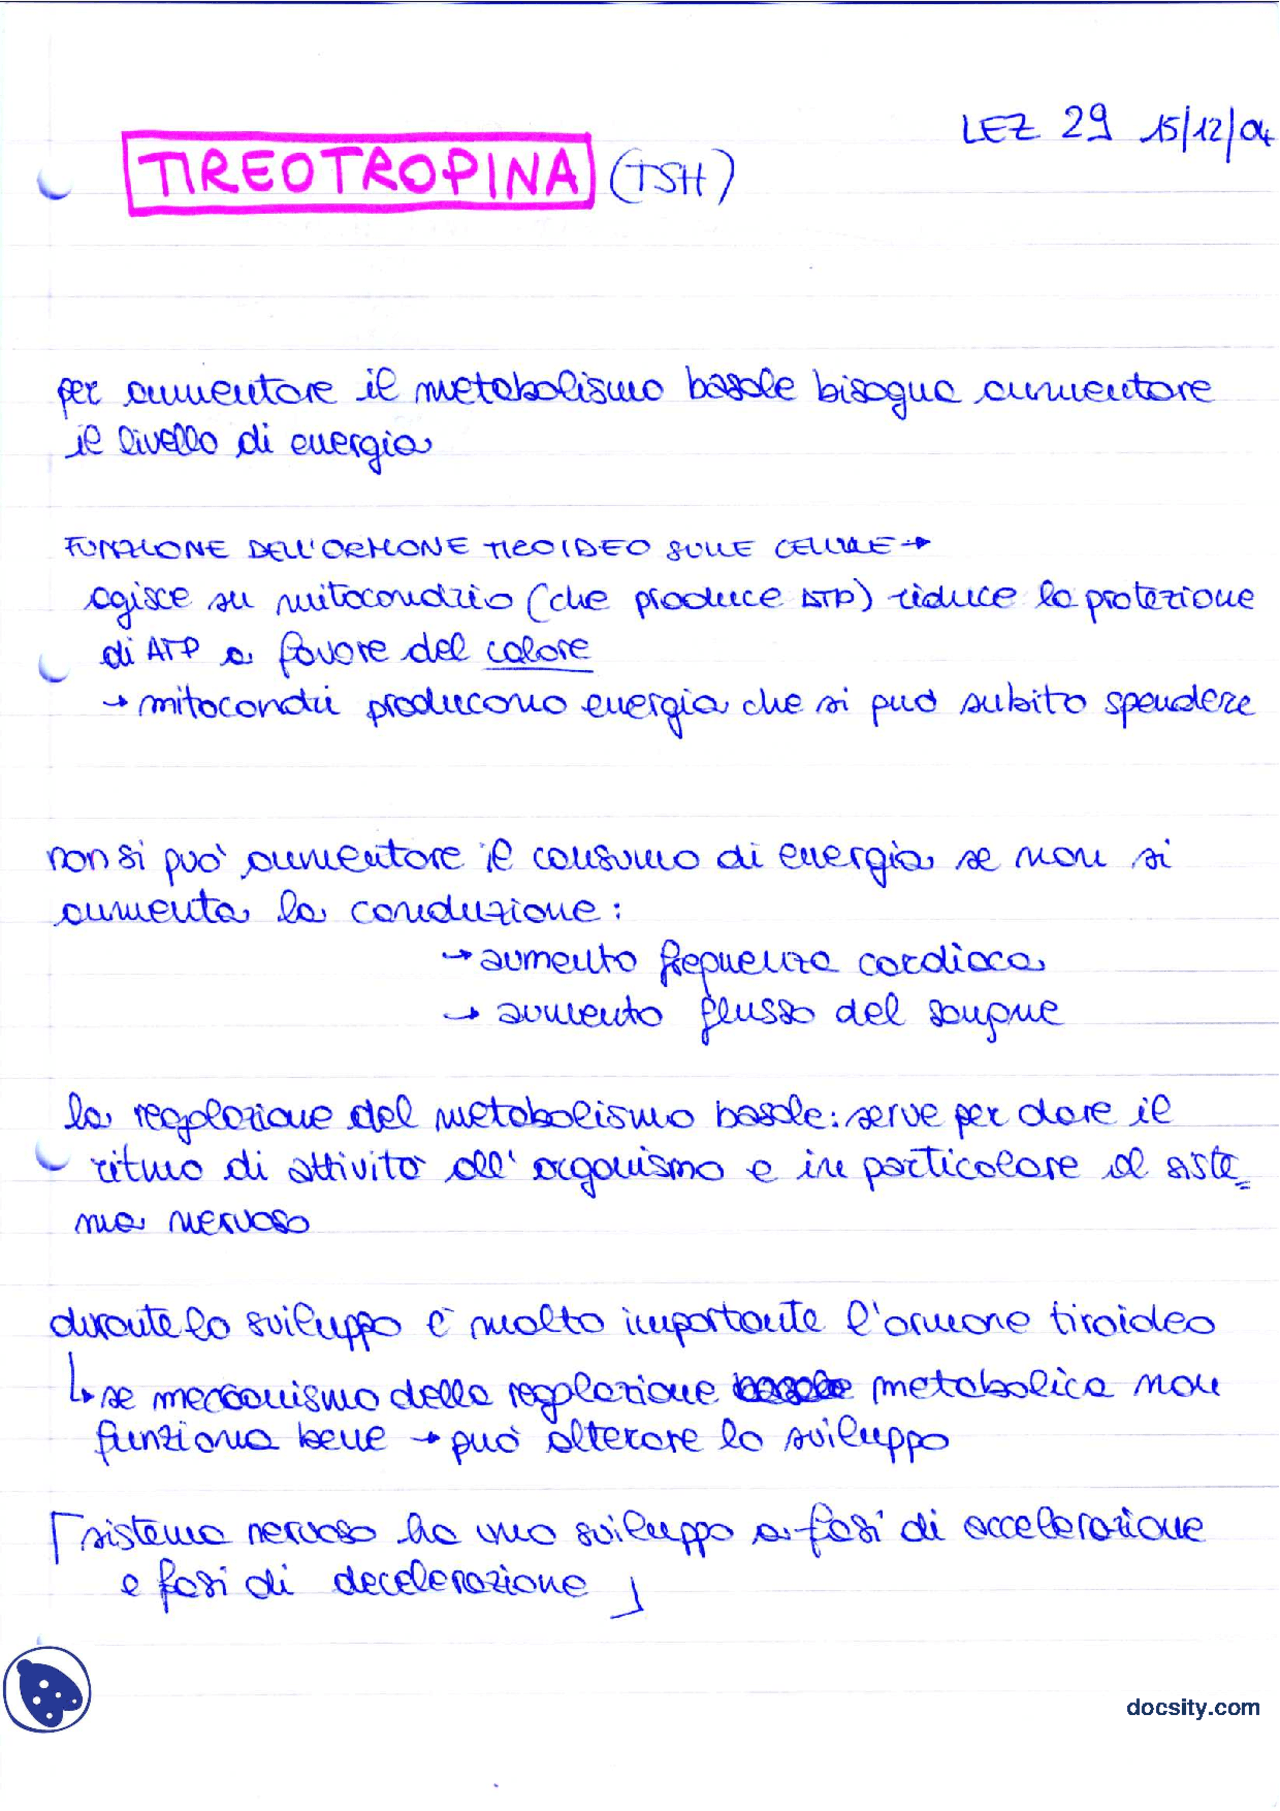 LEZ 29 15/12/04
TIREOTROPINA (TSH)
per aumentare il metabolismo basale bisogna aumentare
il livello di energia
FUNZIONE DELL'ORMONE TIROIDEO SULLE CELLULE →
agisce su mitocondrio (che produce ATP) riduce la protezione
di ATP a favore del calore
→ mitocondri producono energia che si può subito spendere
non si può aumentare il consumo di energia se non si
aumenta la conduzione:
→ aumento frequenza cardiaca
→ aumento flusso del sangue
la regolazione del metabolismo basale: serve per dare il
ritmo di attività all'organismo e in particolare al siste=
ma nervoso
durante lo sviluppo è molto importante l'ormone tiroideo
↳ se meccanismo della regolazione metabolica non
funziona bene → può alterare lo sviluppo
⌈ sistema nervoso ha uno sviluppo a fasi di accelerazione
e fasi di decelerazione ⌋
docsity.com